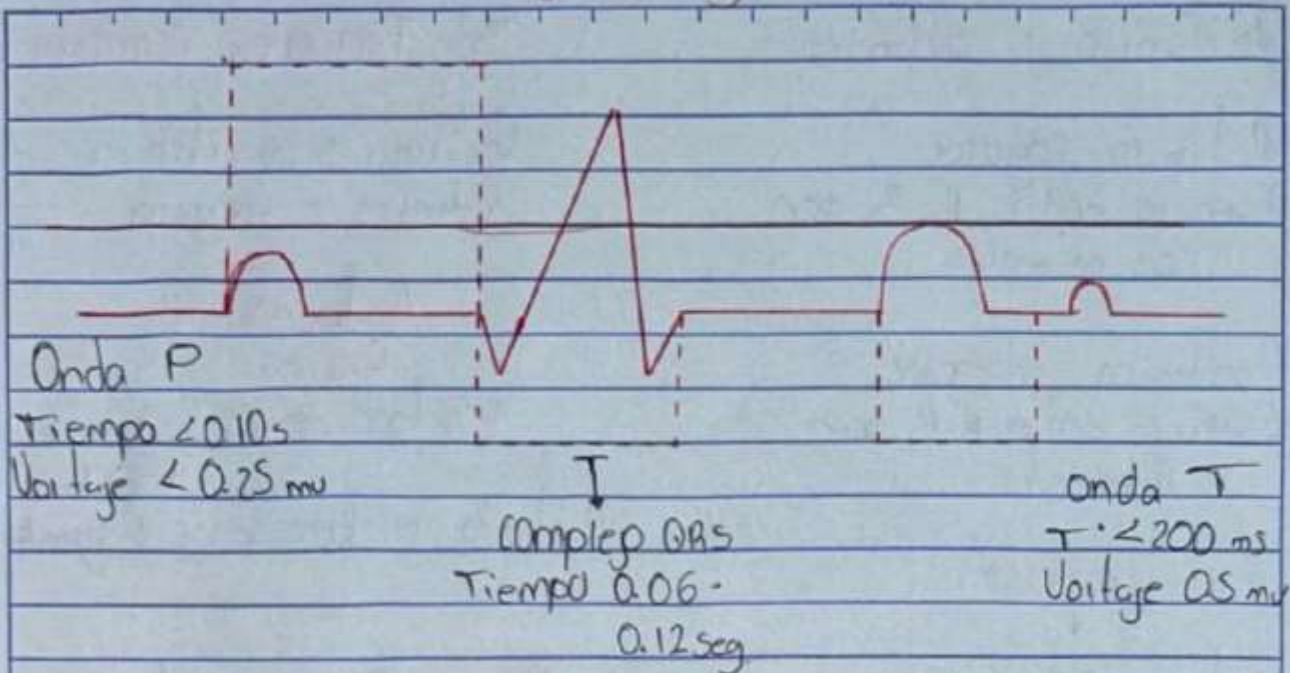 Onda P
Tiempo <0.10s
Voltaje <0.25 mv
Complejo QRS
Tiempo 0.06-
0.12 seg
onda T
T· <200 ms
Voltaje 0.5 mv